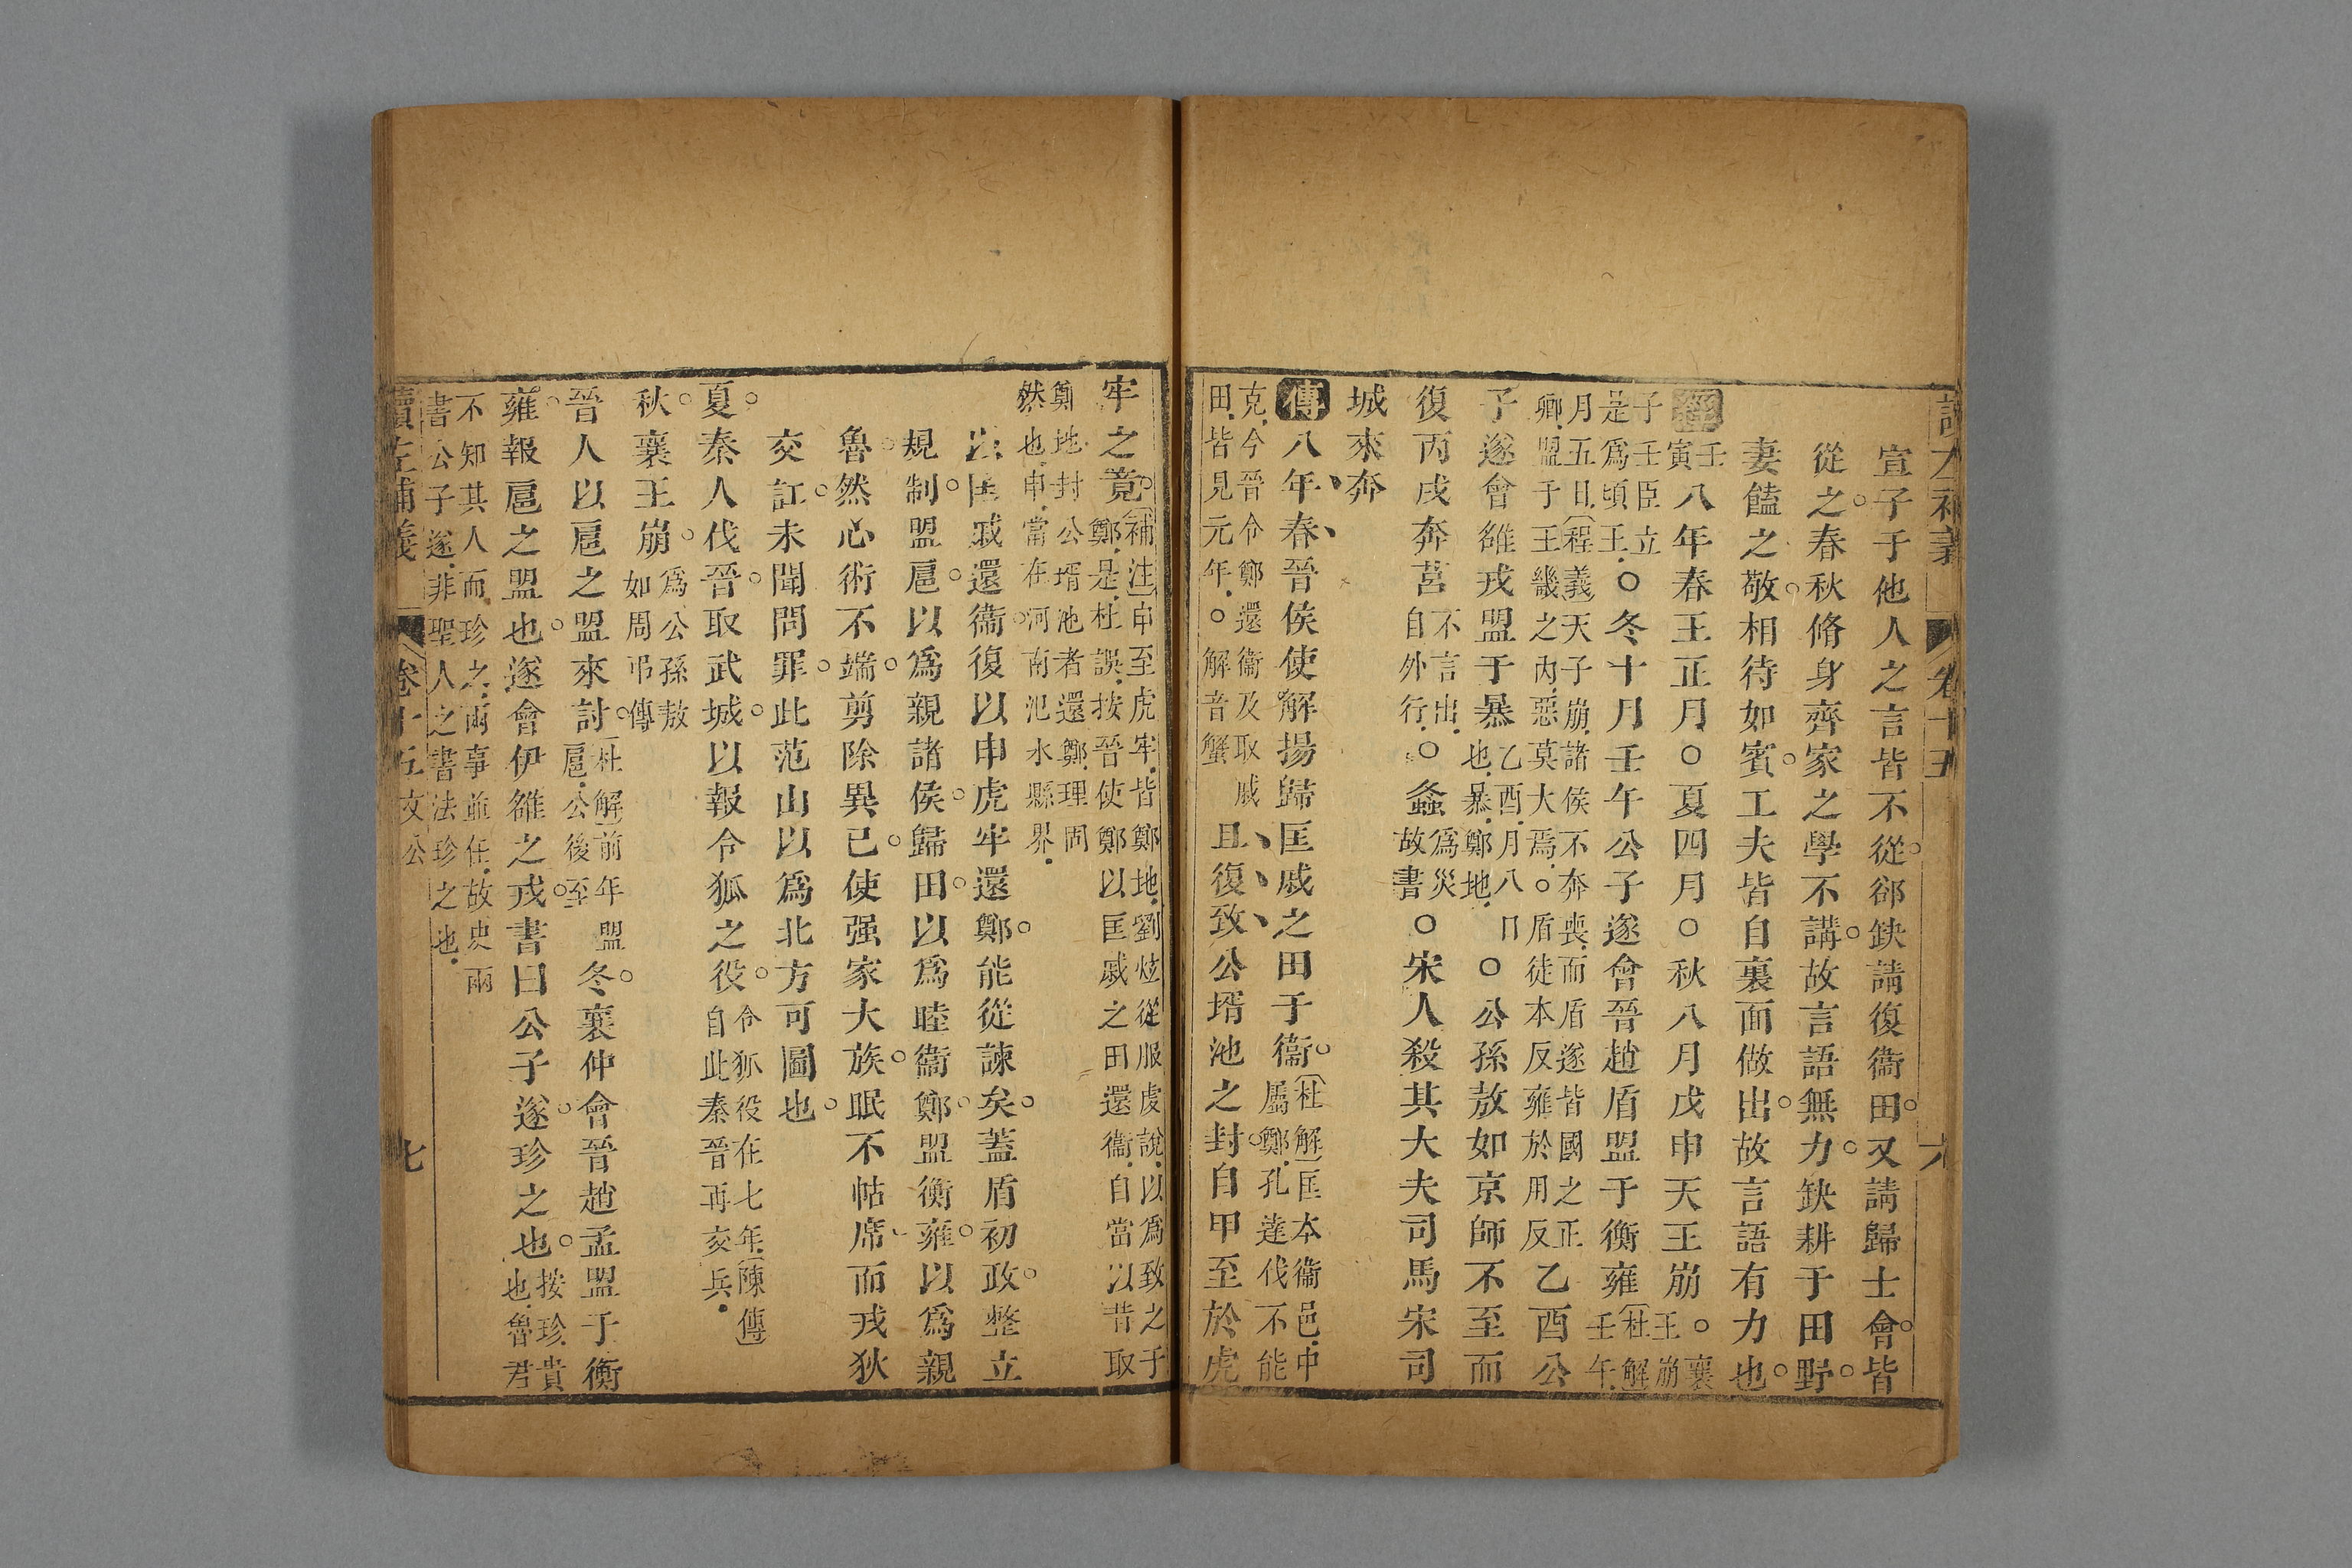 讀左補義 卷十五 六
宣子于他人之言皆不從郤缺請復衞田又請歸士會皆
從之春秋脩身齊家之學不講故言語無力缺耕于田野
妻饁之敬相待如賓工夫皆自裏面做出故言語有力也
經壬寅八年春王正月○夏四月○秋八月戊申天王崩○襄王崩
子壬臣立是爲頃王○冬十月壬午公子遂會晉趙盾盟于衡雍杜解壬午
月五日程義天子崩諸侯不奔喪而盾遂皆國之正卿盟于王畿之內惡莫大焉○盾徒本反雍於用反乙酉公
子遂會雒戎盟于暴乙酉月八日也暴鄭地○公孫敖如京師不至而
復丙戌奔莒不言出自外行○螽爲災故書○宋人殺其大夫司馬宋司
城來奔
傳八年春晉侯使解揚歸匡戚之田于衞杜解匡本衞邑中屬鄭孔達伐不能
克今晉令鄭還衞及取戚田皆見元年○解音蟹且復致公壻池之封自申至於虎
牢之竟補注申至虎牢皆鄭地劉炫從服虔說以爲致之于鄭是杜誤按晉使鄭以匡戚之田還衞自當以昔取
鄭地封公壻池者還鄭理固然也申當在河南氾水縣界
以匡戚還衞復以申虎牢還鄭能從諫矣蓋盾初政整立
規制盟扈以爲親諸侯歸田以爲睦衞鄭盟衡雍以爲親
魯然心術不端剪除異己使强家大族眠不帖席而戎狄
交訌未聞問罪此范山以爲北方可圖也
夏秦人伐晉取武城以報令狐之役令狐役在七年陳傳自此秦晉再交兵
秋襄王崩爲公孫敖如周弔傳
晉人以扈之盟來討杜解前年盟扈公後至冬襄仲會晉趙孟盟于衡
雍報扈之盟也遂會伊雒之戎書曰公子遂珍之也按珍貴也魯君
不知其人而珍之兩事並任故史兩書公子遂非聖人之書法珍之也
讀左補義 卷十五文公 七